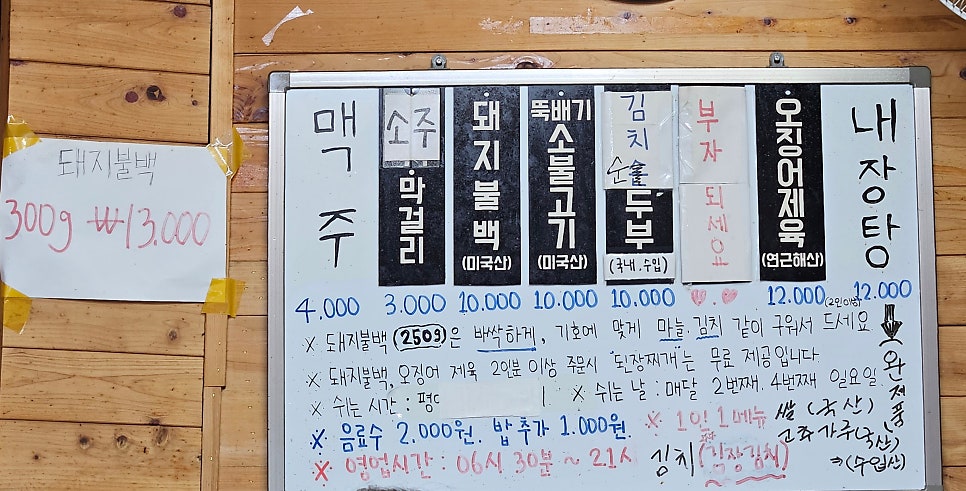 돼지불백
300g ₩13.000
맥주
소주
막걸리
돼지불백
(미국산)
뚝배기
소불고기
(미국산)
김치
순
두부
(국내.수입)
부자
되세요
오징어제육
(연근해산)
내장탕
4.000 3.000 10.000 10.000 10.000 ♡♥ 12.000 (2인이상) 12.000
※ 돼지불백(250g)은 바싹하게, 기호에 맞게 마늘, 김치 같이 구워서 드세요
※ 돼지불백, 오징어 제육 2인분 이상 주문시 "된장찌개"는 무료 제공입니다
※ 쉬는 시간 : 평
※ 쉬는 날 : 매달 2번째. 4번째 일요일
※ 음료수 2.000원. 밥추가 1.000원.
※ 1인 1메뉴
※ 영업시간 : 06시 30분 ~ 21시
완제품
쌀 (국산)
고춧가루(국산)
⇒(수입산)
김치 (김장김치)